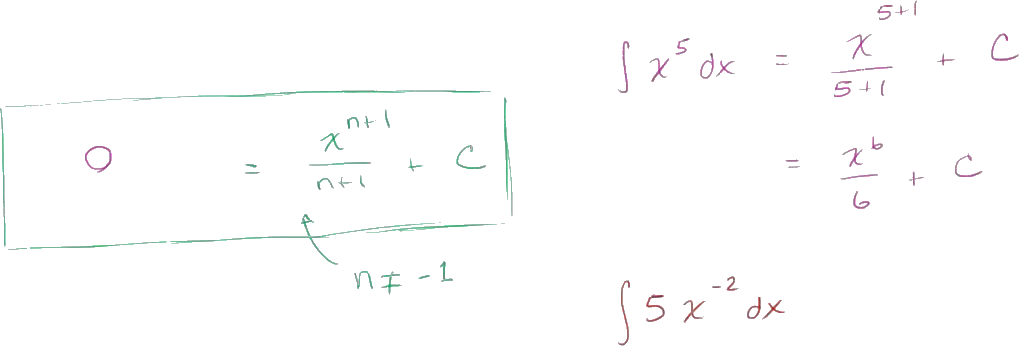 O = x^{n+1}/(n+1) + C
n ≠ -1
∫ x^5 dx = x^{5+1}/(5+1) + C
= x^6/6 + C
∫ 5 x^{-2} dx